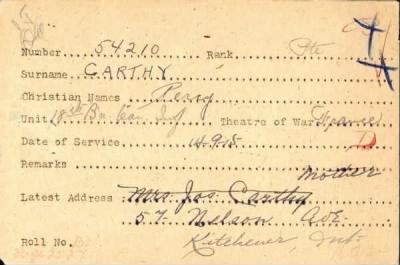 Number 54210 Rank Pte
Surname CARTHY
Christian Names Percy
Unit 18th Bn. Can Inf Theatre of War France
Date of Service 14-9-15
Remarks
Mother
Latest Address Mrs. Jos Carthy
57 Nelson Ave
Roll No. Kitchener, Ont.